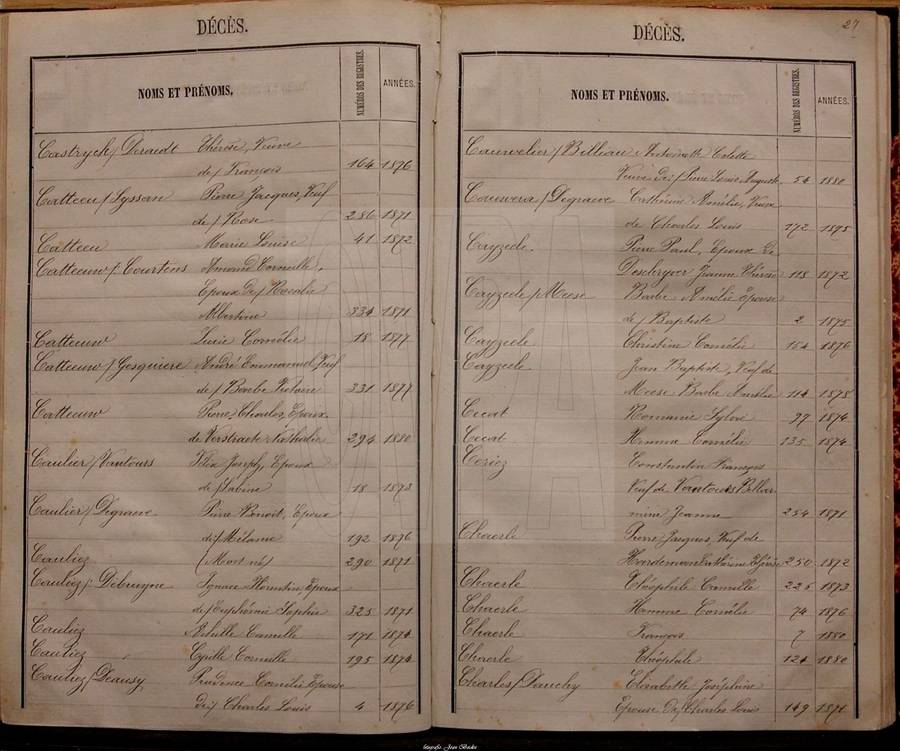 DÉCÈS.
NOMS ET PRÉNOMS.
NUMÉROS DES REGISTRES.
ANNÉES.
Castryck / Deraedt Thérèse, Veuve
de / François 164 1876
Catteeu / Lyssan Pierre Jacques, Veuf
de / Rose 286 1871
Catteeu Marie Louise 41 1872
Catteeuw / Courtens Amand Corneille,
Epoux de / Rosalie
Albertine 334 1871
Catteeuw Lucie Cornélie 18 1877
Catteeuw / Gesquiere André Emmanuel Veuf
de / Barbe Victoire 331 1877
Catteeuw Pierre Charles, Epoux
de Verstraete Nathalie 294 1880
Caulier / Vantours Félix Joseph, Epoux
de / Sabine 18 1873
Caulier / Degrave Pierre Benoit, Epoux
de / Mélanie 192 1876
Cauliez (Mort né) 290 1871
Cauliez / Debruyne Ignace Florentin Epoux
de / Euphémie Sophie 325 1871
Cauliez Achille Camille 171 1874
Cauliez Cyrille Corneille 195 1874
Cauliez / Deausy Prudence Cornélie Epouse
de / Charles Louis 4 1876
DÉCÈS.
27
NOMS ET PRÉNOMS.
NUMÉROS DES REGISTRES.
ANNÉES.
Cauwelier / Billeau Antoinette Colette
Veuve de / Pierre Louis Auguste 54 1880
Couwera / Degraeve Catherine Amélie, Veuve
de Charles Louis 172 1875
Cayzeele Pierre Paul, Epoux de
Deschryver Jeanne Thérèse 118 1872
Cayzeele / Meese Barbe Amélie Epouse
de / Baptiste 2 1875
Cayzeele Christine Cornélie 154 1876
Cayzeele Jean Baptiste, Veuf de
Meese Barbe Amélie 114 1878
Cecat Romanie Sylvie 97 1874
Cecat Hemma Cornélie 135 1874
Ceriez Constantin François
Veuf de Vantours Bellar
mine Jeanne 254 1871
Chaerle Pierre Jacques, Veuf de
Hordeman Catherine Thérèse 250 1872
Chaerle Théophile Camille 225 1873
Chaerle Hemma Cornélie 74 1876
Chaerle François 7 1880
Chaerle Théophile 124 1880
Charles / Dauchy Elisabeth Joséphine
Epouse de / Charles Louis 149 1871
fotografie Jean Backx